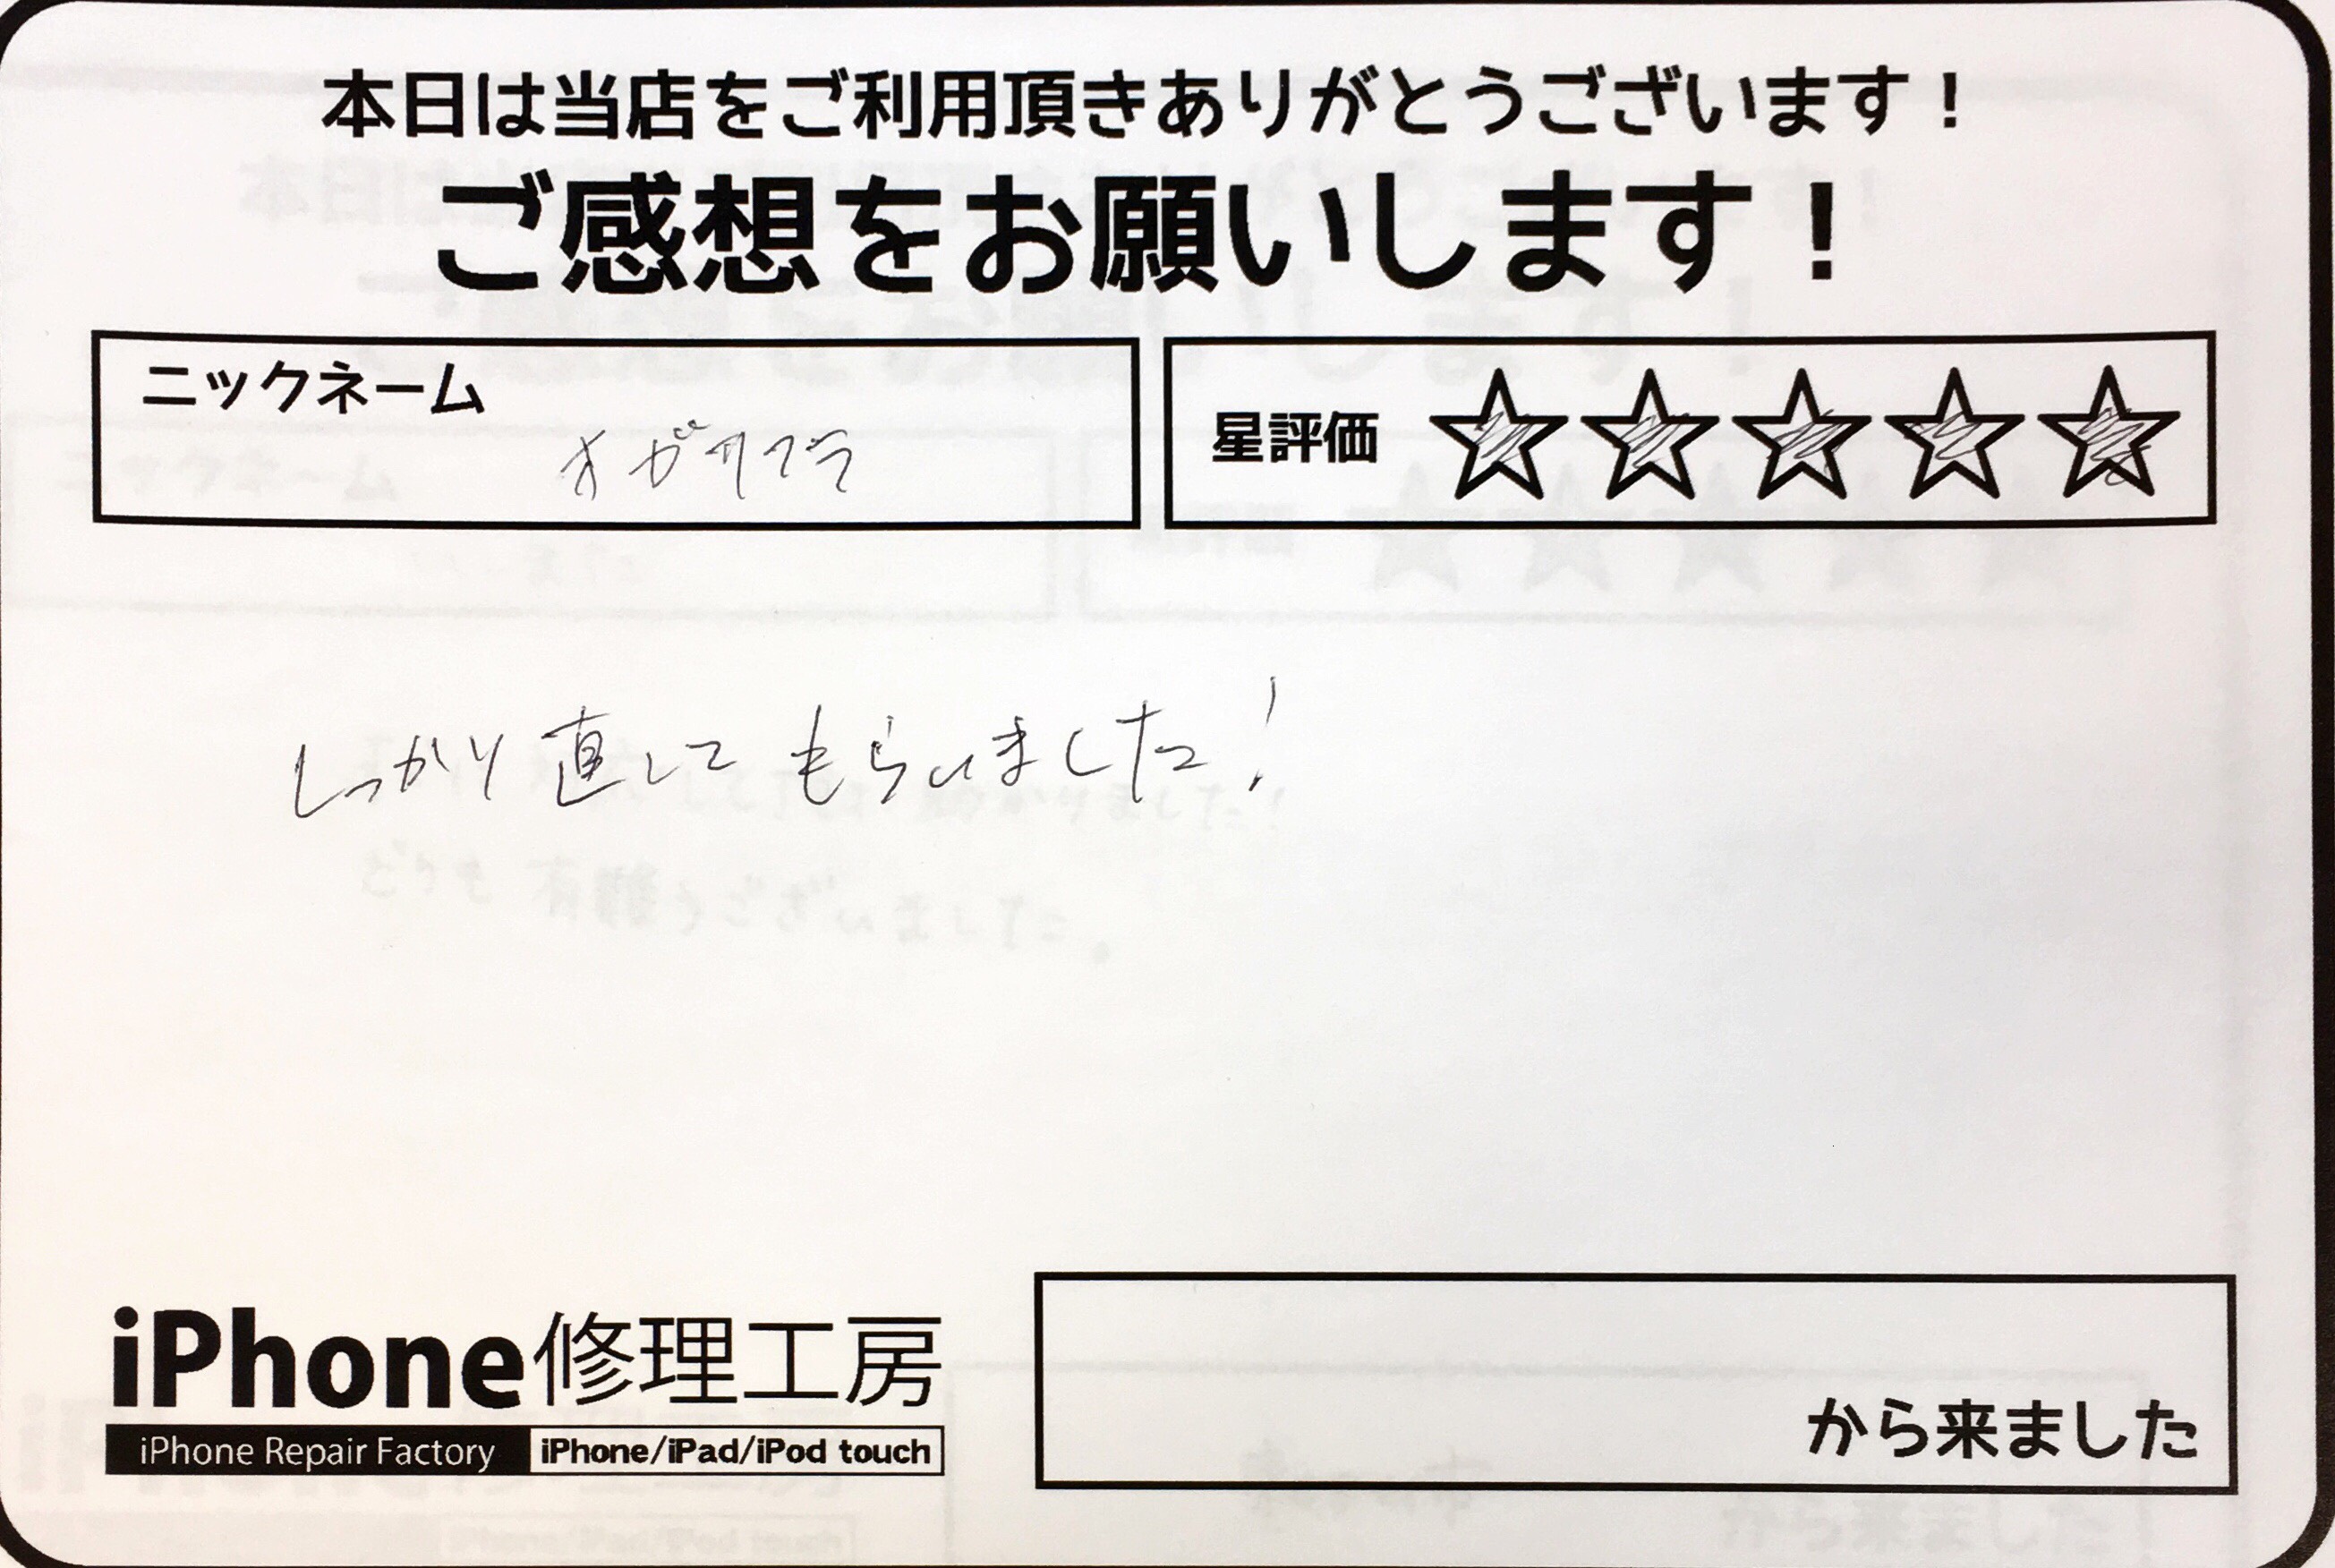 本日は当店をご利用頂きありがとうございます！
ご感想をお願いします！
ニックネーム
オガワマラ
星評価 ☆☆☆☆☆
しっかり直してもらいました！
iPhone修理工房
iPhone Repair Factory iPhone/iPad/iPod touch
から来ました